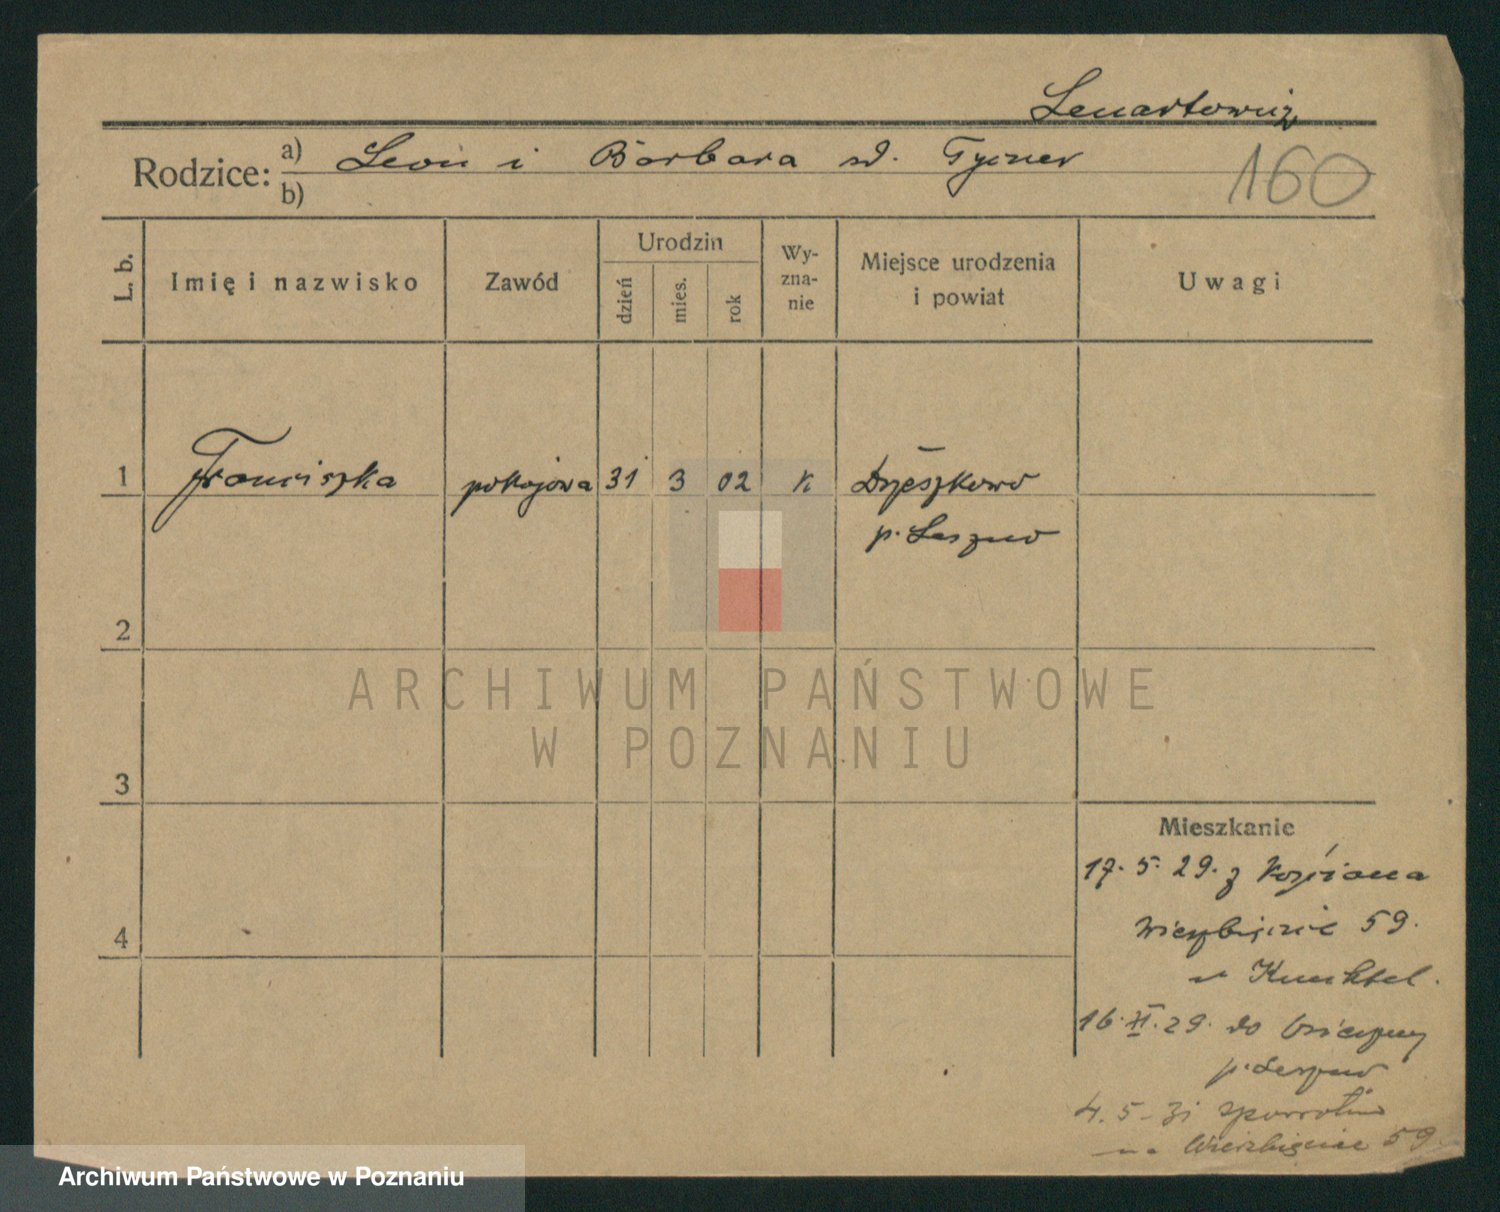 Lenartowicz
Rodzice: a) Leon i Barbara zd. Tycner
b)
160
L. b.
Imię i nazwisko
Zawód
Urodzin
dzień
mies.
rok
Wy-
zna-
nie
Miejsce urodzenia
i powiat
Uwagi
1 Franciszka pokojowa 31 3 02 K Dzieszkowo
p. Leszno
2
3
4
Mieszkanie
17. 5. 29. z Kościana
Wierzbięcice 59.
16. XI. 29. do
p. Leszno
4. 5. 31
na Wierzbięcice 59
ARCHIWUM PAŃSTWOWE
W POZNANIU
Archiwum Państwowe w Poznaniu